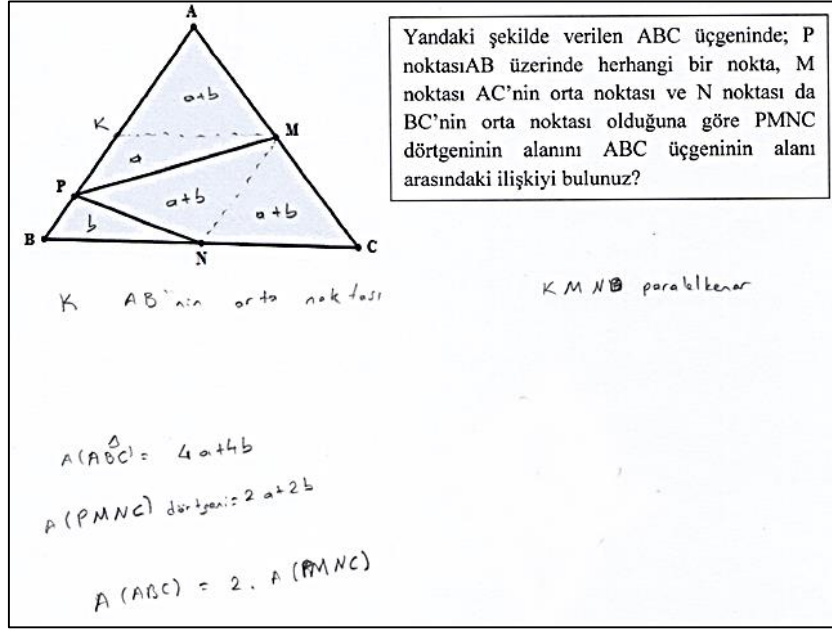 A
Yandaki şekilde verilen ABC üçgeninde; P
noktasıAB üzerinde herhangi bir nokta, M
noktası AC'nin orta noktası ve N noktası da
BC'nin orta noktası olduğuna göre PMNC
dörtgeninin alanını ABC üçgeninin alanı
arasındaki ilişkiyi bulunuz?
a+b
K
M
a
P
a+b
a+b
b
B
N
C
K AB'nin orta noktası
KMNB paralelkenar
A(ABC) = 4a+4b
A(PMNC) dörtgeni = 2a+2b
A(ABC) = 2. A(PMNC)